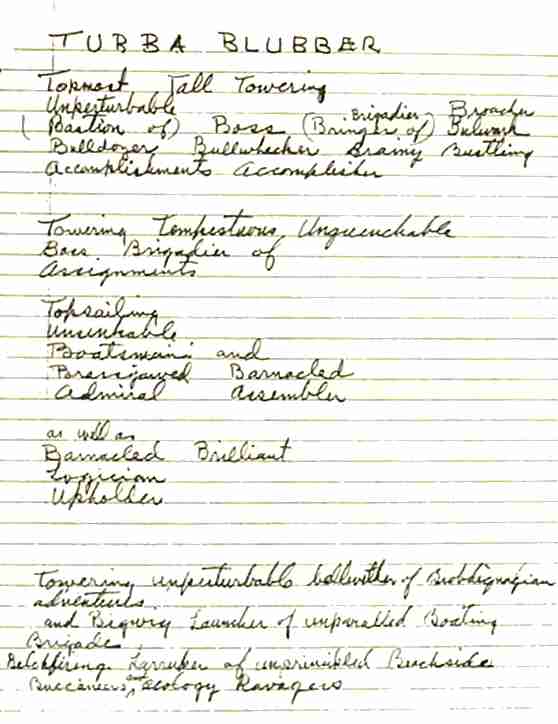 TUBBA BLUBBER
Topmost Tall Towering
Unperturbable
Brigadier Broacher
(Bastion of) Boss (Bringer of) Bulwark
Bulldozer Bullwhacker Brainy Bustling
Accomplishments Accomplisher
Towering Tempestuous Unquenchable
Boss Brigadier of
Assignments
Topsailing
Unsinkable
Boatsmain and
Brassjawed Barnacled
Admiral Assembler
as well as
Barnacled Brilliant
Logician
Upholder
Towering unperturbable bellwether of Brobdignagian
adventures
and Bigwig Launcher of unparalled Boating
Brigade,
Belchfireng of unsprinkled Beachside
Buccaneers, Ecology Ravagers